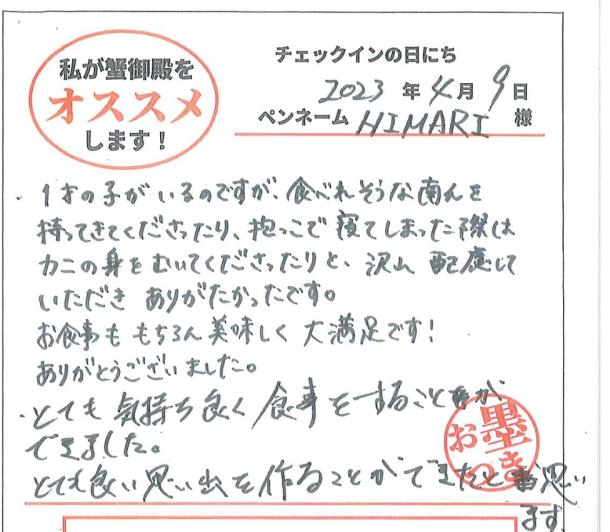 私が蟹御殿を
オススメ
します！
チェックインの日にち
2023 年 4月 9日
ペンネーム HIMARI 様
・1才の子がいるのですが、食べれそうな南んを
持ってきてくださったり、抱っこで寝てしまった際は
カニの身をむいてくださったりと、沢山 配慮して
いただき ありがたかったです。
お食事も もちろん美味しく 大満足です！
ありがとうございました。
・とても 気持ち良く 食事をすることが
できました。
とても良い思い出を作ることができたと思い
ます。
お墨つき